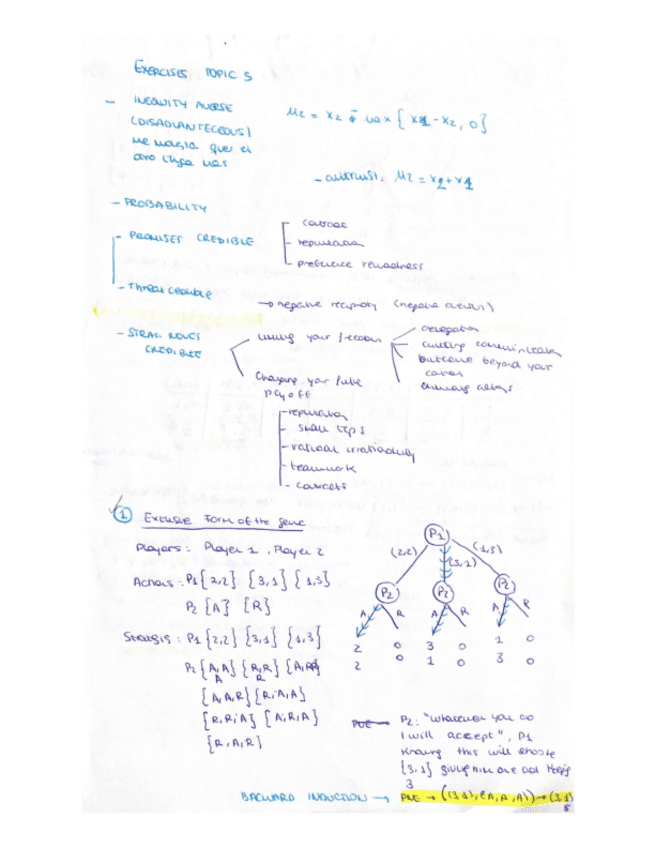 EXERCISES TOPIC 5
- INEQUITY AVERSE
(DISADVANTEGEOUS)
que el
otro tinga mes
- PROBABILITY
- PROMISES CREDIBLE
contract
reputation
preference
- Threat credible
→ negative reciprocity (negative
- STRAT. MOVES
CREDIBLE
your freedom
cutting communication
outcome beyond your
control
Changing your future
payoff
- reputation
- small steps
- rational irrationality
- teamwork
- contracts
① Extensive Form of the game
Players: Player 1, Player 2
Actions: P1 {2,2} {3,1} {1,3}
P2 {A} {R}
Strategies: P1 {2,2} {3,1} {1,3}
{A,A,R} {R,A,A}
{R,R,A} {A,R,A}
{R,A,R}
P1
(2,2) (3,1) (1,3)
P2 P2 P2
A R A R A R
2 0 3 0 1 0
2 0 1 0 3 0
P2: "Whatever you do
I will accept", P1
knowing this will choose
{3,1} giving him one and keeping
3
BACWARD INDUCTION → PNE → ((3,1), (A,A,A)) → (3,1)